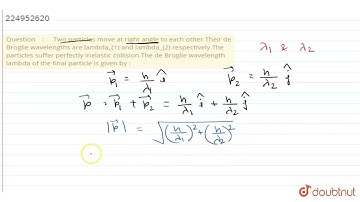 224952620
Question : Two particles move at right angle to each other.Their de
Broglie wavelengths are lambda_(1) and lambda_(2) respectively.The
particles suffer perfectly inelastic collision.The de Broglie wavelength
lambda of the final particle is given by :
λ₁ & λ₂
p⃗₁ = h/λ₁ î    p⃗₂ = h/λ₂ ĵ
p⃗ = p⃗₁ + p⃗₂ = h/λ₁ î + h/λ₂ ĵ
|p⃗| = √((h/λ₁)² + (h/λ₂)²)
doubtnut